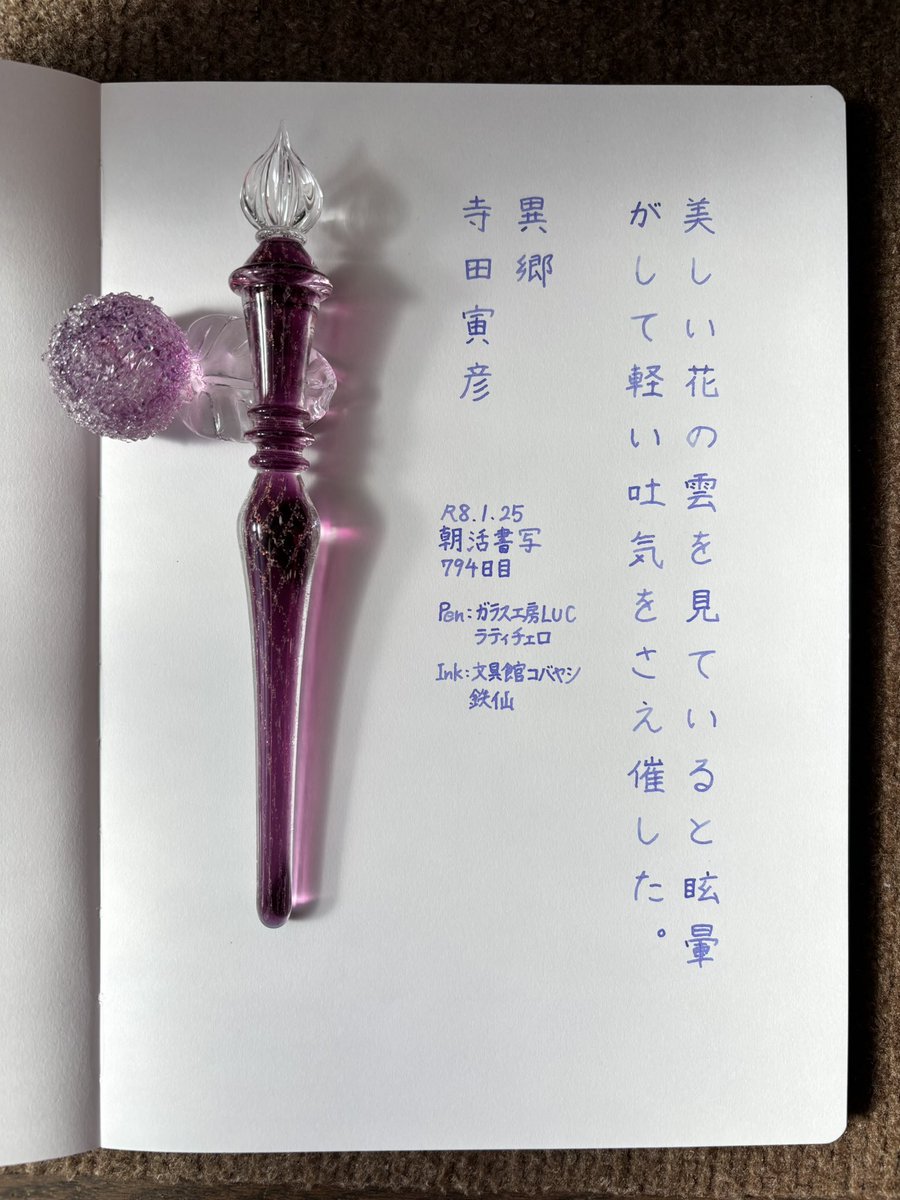 美しい花の雲を見ていると眩暈
がして軽い吐気をさえ催した。
異郷
寺田寅彦
R8.1.25
朝活書写
794日目
Pen:ガラス工房LUC
ラティチェロ
Ink:文具館コバヤシ
鉄仙